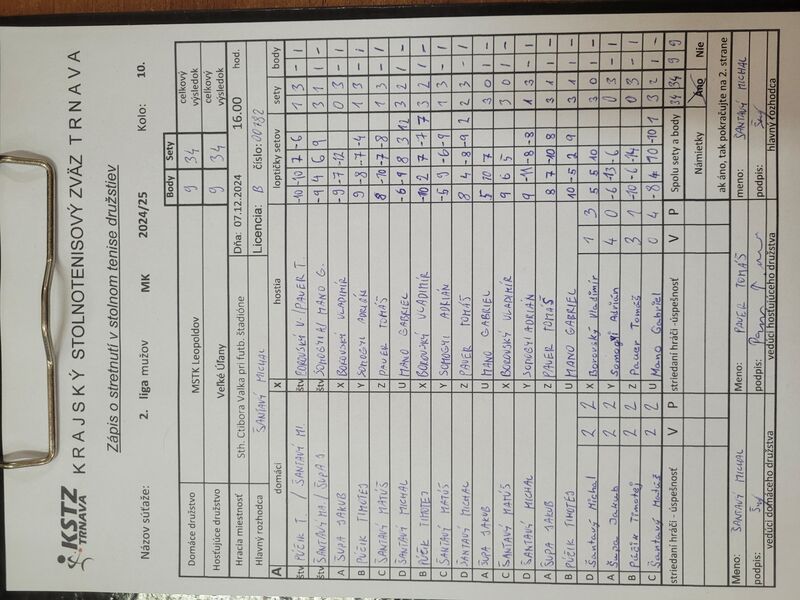 KSTZ
TRNAVA
KRAJSKÝ STOLNOTENISOVÝ ZVÄZ TRNAVA
Zápis o stretnutí v stolnom tenise družstiev
Názov súťaže: 2. liga mužov MK 2024/25 Kolo: 10.
Body Sety
Domáce družstvo MSTK Leopoldov 9 34 celkový výsledok
Hosťujúce družstvo Veľké Úľany 9 34 celkový výsledok
Hracia miestnosť Sth. Ctibora Valka pri futb. štadióne Dňa: 07.12.2024 16.00 hod.
Hlavný rozhodca ŠANTAVÝ MICHAL Licencia: B číslo: 00782
A domáci X hostia loptičky setov sety body
štv PÚČIK T. / ŠANTAVÝ MI. štv BOROVSKÝ V. / PAVER T. -10 -10 7 -6 1 3 - 1
štv ŠANTAVÝ MA. / ŠUPA J. štv SOMOGYI A / MANO G. -9 4 6 9 3 1 1 -
A ŠUPA JAKUB X BOROVSKÝ VLADIMÍR -9 -7 -12 0 3 - 1
B PÚČIK TIMOTEJ Y SOMOGYI ADRIÁN 9 -8 -7 -4 1 3 - 1
C ŠANTAVÝ MATÚŠ Z PAVER TOMÁŠ 8 -10 -7 -8 1 3 - 1
D ŠANTAVÝ MICHAL U MANO GABRIEL -6 -9 8 3 12 3 2 1 -
B PÚČIK TIMOTEJ X BOROVSKÝ VLADIMÍR -10 2 7 -7 7 3 2 1 -
C ŠANTAVÝ MATÚŠ Y SOMOGYI ADRIÁN -6 9 -6 -9 1 3 - 1
D ŠANTAVÝ MICHAL Z PAVER TOMÁŠ 8 4 -8 -9 2 3 - 1
A ŠUPA JAKUB U MANO GABRIEL 5 10 7 3 0 1 -
C ŠANTAVÝ MATÚŠ X BOROVSKÝ VLADIMÍR 9 6 5 3 0 1 -
D ŠANTAVÝ MICHAL Y SOMOGYI ADRIÁN 9 -11 -8 -8 1 3 - 1
A ŠUPA JAKUB Z PAVER TOMÁŠ 8 7 -10 8 3 1 1 -
B PÚČIK TIMOTEJ U MANO GABRIEL 10 -5 2 9 3 1 1 -
D Šantavý Michal 2 2 X Borovský Vladimír 1 3 5 5 10 3 0 1 -
A Šupa Jakub 2 2 Y Somogyi Adrián 4 0 -6 -13 -6 0 3 - 1
B Púčik Timotej 2 2 Z Paver Tomáš 3 1 -10 -6 -14 0 3 - 1
C Šantavý Matúš 2 2 U Mano Gabriel 0 4 -8 4 10 -10 1 3 2 1 -
striedaní hráči - úspešnosť V P striedaní hráči - úspešnosť V P Spolu sety a body 34 34 9 9
Námietky Áno Nie
ak áno, tak pokračujte na 2. strane
Meno: ŠANTAVÝ MICHAL Meno: PAVER TOMÁŠ meno: ŠANTAVÝ MICHAL
podpis: podpis: podpis:
vedúci domáceho družstva vedúci hosťujúceho družstva hlavný rozhodca